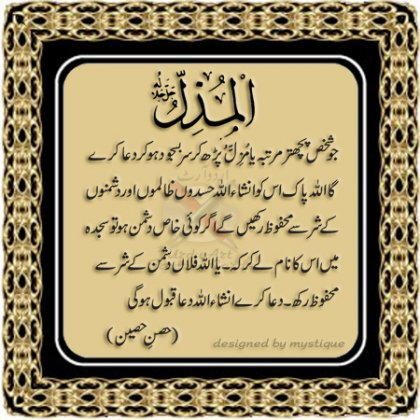 المُذِلُّ جَلَّ جَلَالُهُ
جو شخص پچھتر مرتبہ یا مُذِلُّ پڑھ کر سربسجود ہو کر دعا کرے
گا اللہ پاک اس کو انشاءاللہ حسدوں ظالموں اور دشمنوں
کے شر سے محفوظ رکھیں گے اگر کوئی خاص دشمن ہو تو سجدہ
میں اس کا نام لے کر کہے۔ یا اللہ فلاں دشمن کے شر سے
محفوظ رکھ۔ دعا کرے انشاءاللہ دعا قبول ہوگی
(حصنِ حصین)
designed by mystique